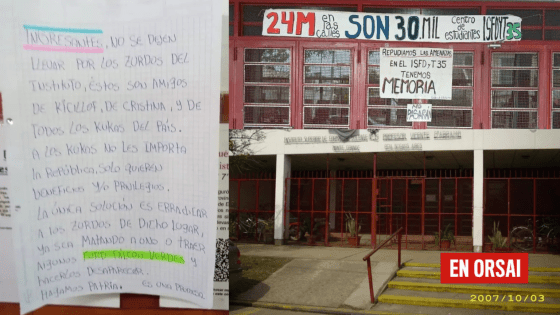 INGRESANTES, NO SE DEJEN
LLEVAR POR LOS ZURDOS DEL
INSTITUTO, ÉSTOS SON AMIGOS
DE KICILLOF, DE CRISTINA, Y DE
TODOS LOS KUKAS DEL PAÍS.
A LOS KUKAS NO LES IMPORTA
LA REPÚBLICA, SOLO QUIEREN
BENEFICIOS Y/O PRIVILEGIOS.
LA ÚNICA SOLUCIÓN ES ERRADICAR
A LOS ZURDOS DE DICHO LUGAR,
YA SEA MATANDO A UNO O TRAER
ALGUNOS FALCON VERDES Y
HACERLOS DESAPARECER.
HAGAMOS PATRIA. ES UNA PROMESA
24M en las calles SON 30.MIL Centro de estudiantes ISFDYT 35
REPUDIAMOS LAS AMENAZAS
EN EL ISFD y T 35
TENEMOS
MEMORIA
NO
PASARÁN
EN ORSAI
2007/10/03